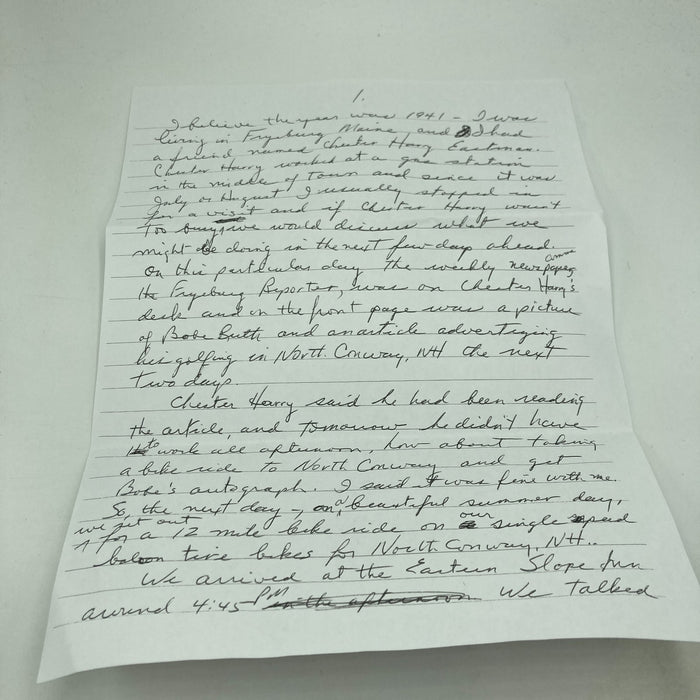 1.
I believe the year was 1941 - I was
living in Fryeburg Maine, and I had
a friend named Chester Harry Eastman.
Chester Harry worked at a gas station
in the middle of Town and since it was
July or August I usually stopped in
for a visit and if Chester Harry wasn't
too busy, we would discuss what we
might be doing in the next few days ahead.
On this particular day the weekly newspaper,
the Fryeburg Reporter, was on Chester Harry's
desk and on the front page was a picture
of Babe Ruth and an article advertizing
his golfing in North Conway, NH the next
two days.
Chester Harry said he had been reading
the article, and tomorrow he didn't have
to work all afternoon, how about taking
a bike ride to North Conway and get
Babe's autograph. I said it was fine with me.
So, the next day -, on a beautiful summer day,
we set out
for a 12 mile bike ride on our single speed
baloon tire bikes for North Conway, NH..
We arrived at the Eastern Slope Inn
around 4:45 PM in the afternoon We talked